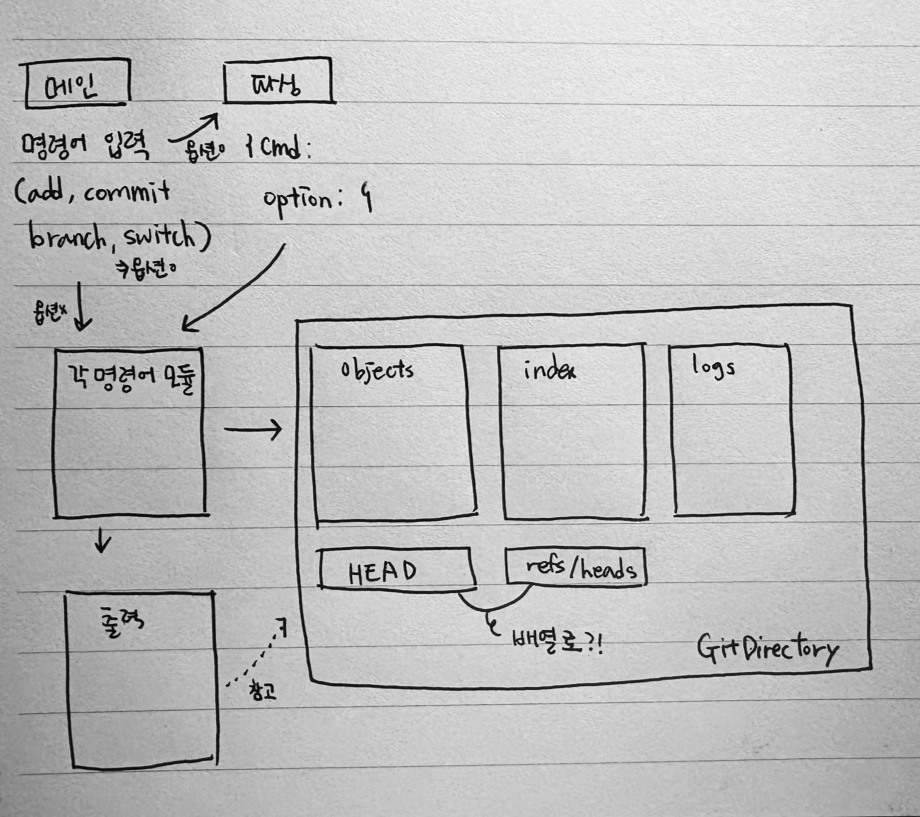 메인
파싱
명령어 입력
옵션o
{ cmd:
(add, commit
option: }
branch, switch)
→옵션o
옵션x
각 명령어 모듈
objects
index
logs
HEAD
refs/heads
출력
배열로?!
GitDirectory
참고